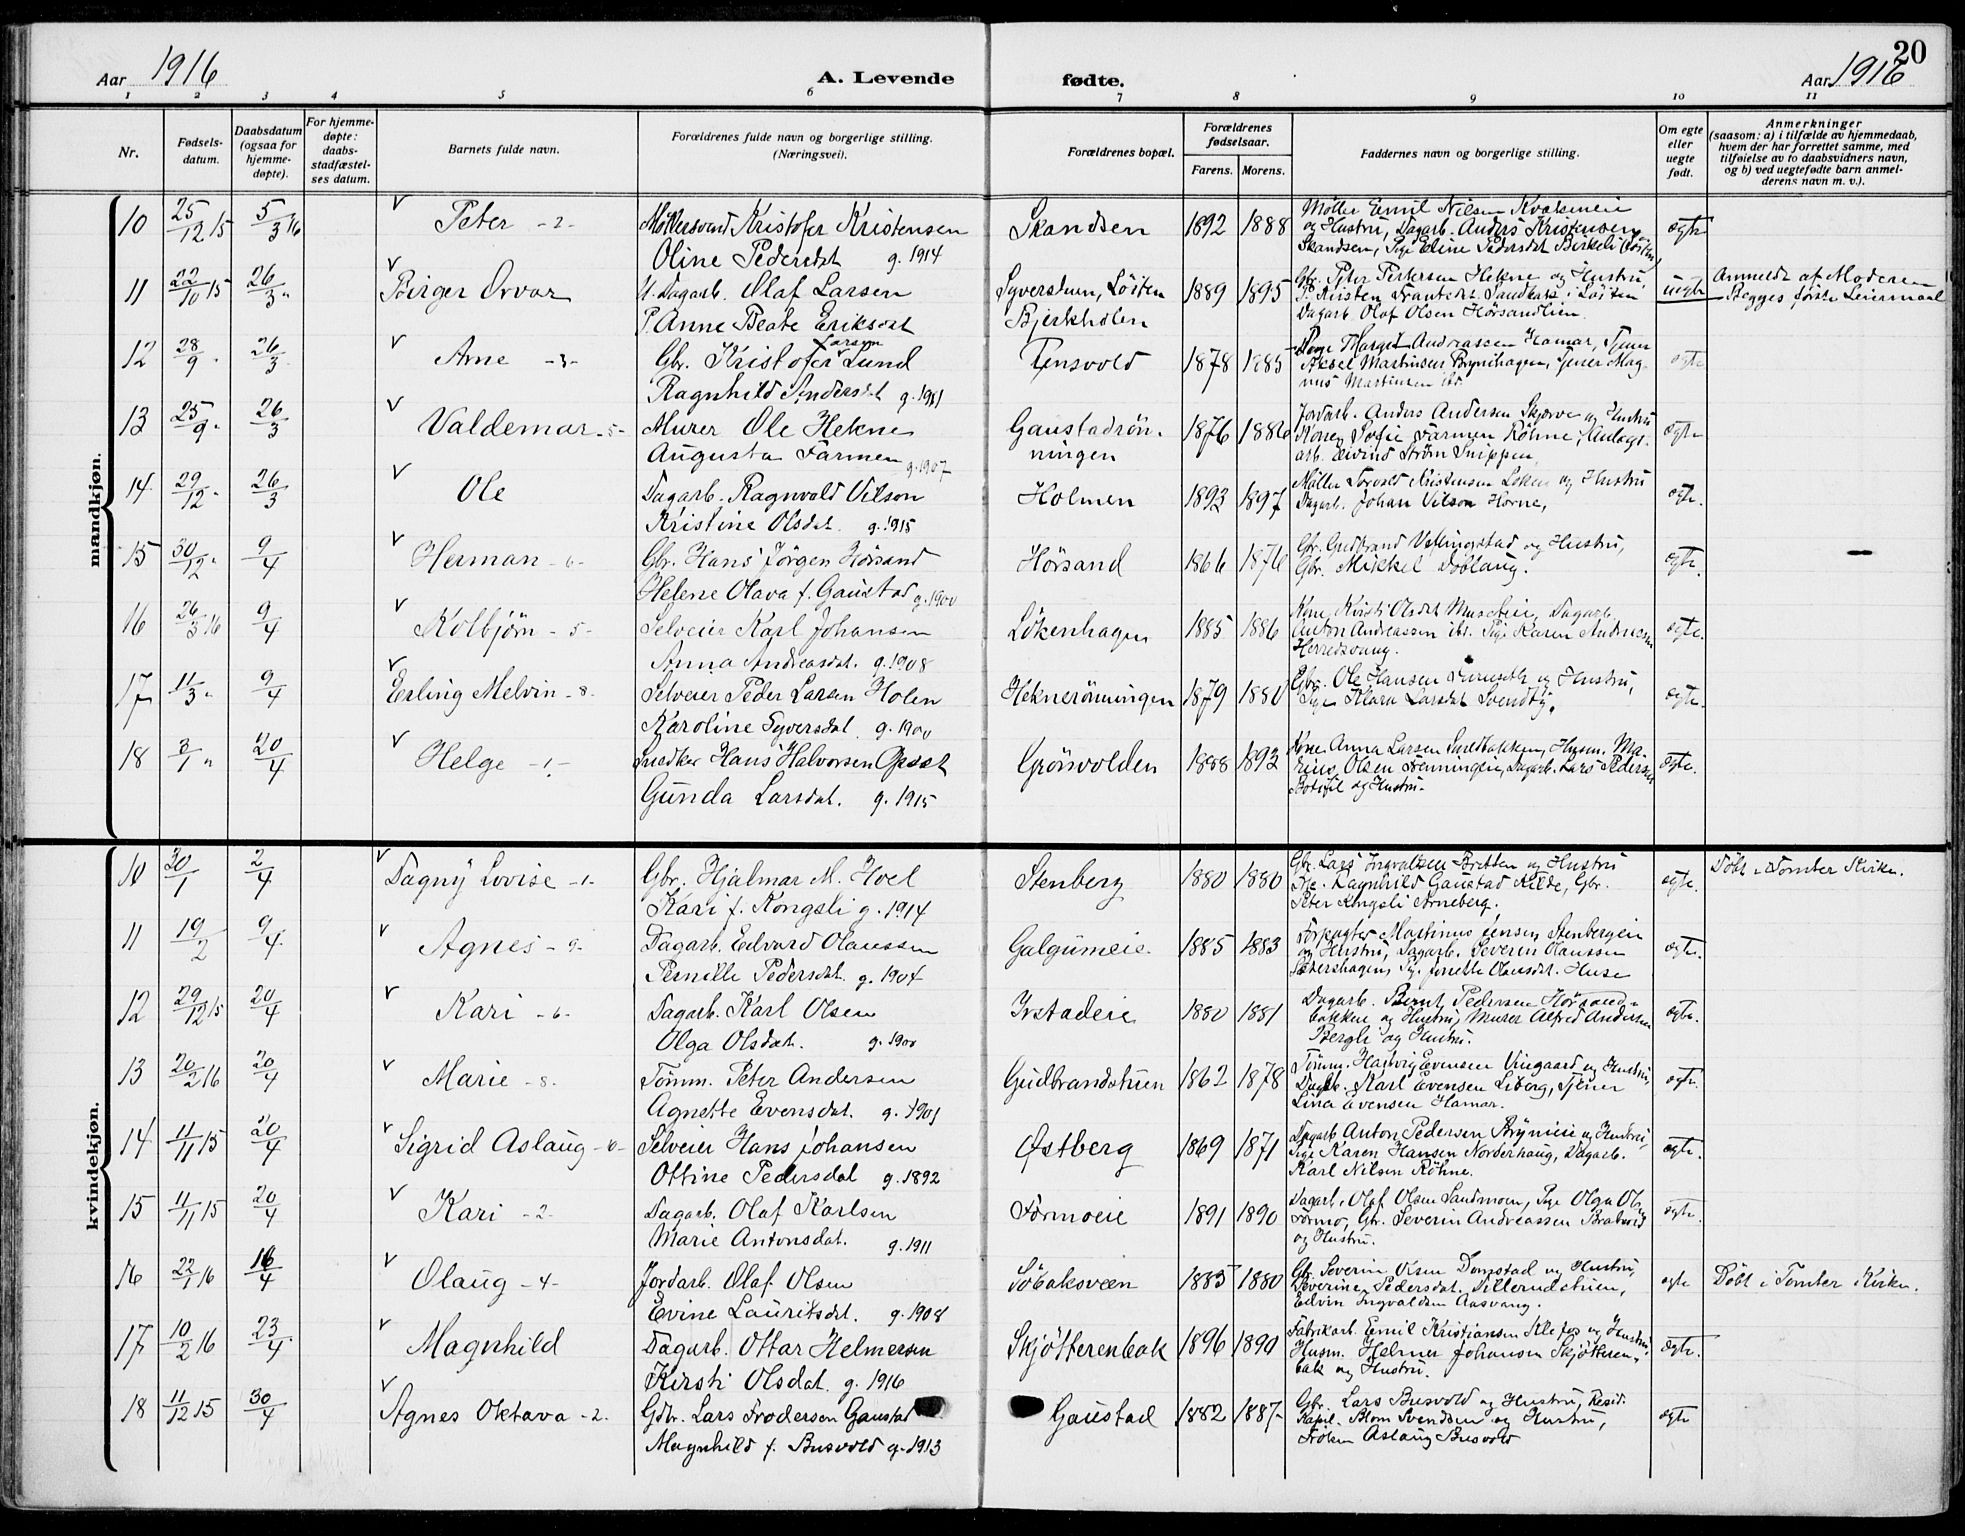 Aar 1916
A. Levende
fødte.
Aar 1916
20
1 2 3 4 5 6 7 8 9 10 11
Nr.
Fødsels-
datum.
Daabsdatum
(ogsaa for
hjemme-
døpte).
For hjemme-
døpte:
daabs-
stadfæstel-
ses datum.
Barnets fulde navn.
Forældrenes fulde navn og borgerlige stilling.
(Næringsvei).
Forældrenes bopæl.
Forældrenes
fødselsaar.
Farens. Morens.
Faddernes navn og borgerlige stilling.
Om egte
eller
uegte
født.
Anmerkninger
(saasom: a) i tilfælde av hjemmedaab,
hvem der har forrettet samme, med
tilføielse av to daabsvidners navn,
og b) ved uegtefødte barn anmel-
derens navn m. v.).
mandkjøn.
10 25/12 15 5/3 16 Peter -2- Møllersvend Kristofer Kristensen Skandsen 1892 1888 Møller Emil Nilsen Kvækmeie ægte
Oline Pedersdat g. 1914 og Hustru, Dagarb. Anders Kristensen
Skandsen, Pige Eline Pedersdat Birkeli
11 22/10 15 26/3 " Birger Orvar U. Dagarb. Olaf Larsen Syverstuen, Løiten 1889 1895 Gbr. Peter Pedersen Hekne og Hustru, uegte Anmeldt af Moderen
P. Anne Beate Eriksdat Bjerkholen P. Kirsten Sandbakk i Løiten Begges første Leiermaal
Dagarb. Olaf Olsen Hørsandlien
12 28/9 " 26/3 Arne -3- Gbr. Kristofer Larsen Lund Tensvold 1878 1885 Margit Andreassen Hamar, Tjener ægte
Ragnhild Andersdat g. 1911 Aksel Martinsen Brynihagen, Tjener Mag-
nus Martinsen ibd.
13 25/9 " 26/3 Valdemar -5- Murer Ole Hekne Gaustadrøn- 1876 1886 Jordarb. Anders Andersen Skjerve og Hustru ægte
Augusta Farmen g. 1907 ningen Kone Sofie Farmen Røhne, Anlægs-
arb. Eivind Strøm Snippen
14 29/12 " 26/3 Ole Dagarb. Ragnvald Vilson Holmen 1893 1897 Møller Torvald Kristensen Løken og Hustru ægte.
Kristine Olsdat. g. 1915 Dagarb. Johan Vilson Horne,
15 30/12 " 9/4 Herman -6- Gbr. Hans Jørgen Hørsand Hørsand 1866 1876 Gbr. Gudbrand Vettingstad og Hustru, ægte. —
Helene Olava f. Gaustad g. 1900 Gbr. Mikkel Doblaug.
16 26/3 16 9/4 Kolbjørn -5- Selveier Karl Johansen Løkenhagen 1885 1886 Kone Kristi Olsdat Dagarb. ægte.
Anna Andreasdat. g. 1908 Anton Andreassen ibd. Pige Karen Andreassen
Herredsvang.
17 11/3 " 9/4 Erling Melvin -8- Selveier Peder Larsen Holen Heknerønningen 1879 1880 Gbr. Ole Hansen Furuseth og Hustru, ægte.
Karoline Syversdat. g. 1900 Pige Klara Larsdat Svendby.
18 3/1 " 20/4 Helge -1- Snedker Hans Halvorsen Opsæt Grønvolden 1888 1892 Kone Anna Larsen Smedbakken, Husm. Ma- ægte.
Gunda Larsdat. g. 1915 rius Olsen Dagarb. Lars Pedersen
og Hustru.
kvindekjøn.
10 30/1 2/4 Dagny Lovise -1- Gbr. Hjalmar M. Hoel Stenberg 1880 1880 Gbr. Lars Ingvaldsen Bretten og Hustru ægte. Døbt i Tomter Kirke.
Kari f. Kongsli g. 1914 Ragnhild Gaustad Kilde, Gbr.
Peter Kongsli Arneberg.
11 19/2 9/4 Agnes -9- Dagarb. Edvard Olaussen Galgumeie 1885 1883 Forpagter Martinus Jensen Stenbergeie ægte.
Pernille Pedersdat. g. 1904 og Hustru, Dagarb. Severin Olaussen
Sætershagen, Pige Jonette Olausdat. Huse
12 29/12 15 20/4 Kari -6- Dagarb. Karl Olsen Ivstadeie 1880 1881 Dagarb. Bernt Pedersen Hørsand- ægte.
Olga Olsdat. g. 1900 bakken og Hustru, Murer Alfred Andersen
Bergli og Hustru.
13 20/2 16 20/4 Marie -8- Tømm. Peter Andersen Gudbrandstuen 1862 1878 Tømm. Hartvig Evensen Vingaard og Hustru, ægte.
Agnette Evensdat. g. 1901 Dagarb. Karl Evensen Liberg, Tjener
Lina Evensen Hamar.
14 11/11 15 20/4 Sigrid Aslaug -6- Selveier Hans Johansen Østberg 1869 1871 Dagarb Anton Pedersen Brynieie og Hustru, ægte.
Ottine Pedersdat g. 1892 Pige Karen Hansen Norderhaug, Dagarb.
Karl Nilsen Røhne.
15 11/11 15 20/4 Kari -2- Dagarb. Olaf Karlsen Formoeie 1891 1890 Dagarb. Olaf Olsen Sandmoen, Pige Olga Olsen ægte.
Marie Antonsdat. g. 1911 Formo, Gbr. Severin Andreassen
og Hustru.
16 22/1 16 16/4 Olaug -4- Jordarb. Olaf Olsen Søbaksveen 1885 1880 Gbr. Severin Olsen Domstad og Hustru, ægte Døbt i Tomter Kirke.
Evine Lauritsdat. g. 1908 Severine Pedersdat. Dillerudstuen,
Edvin Ingvaldsen Aasvang.
17 10/2 16 23/4 Magnhild Dagarb. Ottar Helmersen Skjøtterenbak 1896 1890 Fabrikarb. Emil Kristiansen Klefos og Hustru, ægte.
Kirsti Olsdat. g. 1916 Husm. Helmer Johansen Skjøtteren-
bak og Hustru.
18 11/12 15 30/4 Agnes Oktava -2- Gdbr. Lars Frodersen Gaustad Gaustad 1882 1887 Gbr. Lars Busvold og Hustru, Resid. ægte
Magnhild f. Busvold g. 1913 Kapel. Blom Svendsen og Hustru,
Frøken Aslaug Busvold